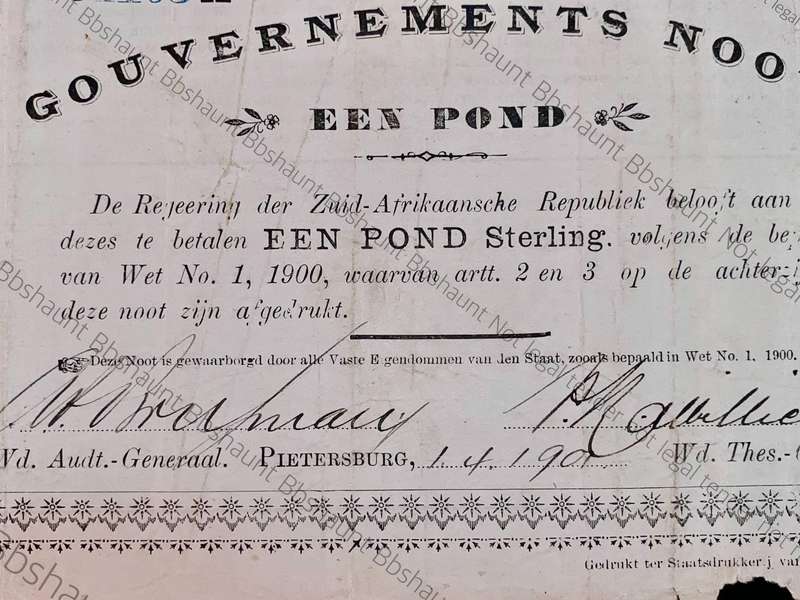 GOUVERNEMENTS NOO
EEN POND
De Regeering der Zuid-Afrikaansche Republiek belooft aan
dezes te betalen EEN POND Sterling. volgens de bep
van Wet No. 1, 1900, waarvan artt. 2 en 3 op de achterzij
deze noot zijn afgedrukt.
Deze Noot is gewaarborgd door alle Vaste E gendommen van den Staat, zooals bepaald in Wet No. 1, 1900.
Wd. Audt.-Generaal. PIETERSBURG, 1.4.190 Wd. Thes.-
Gedrukt ter Staatsdrukkerij van
Bbshaunt Not legal tender